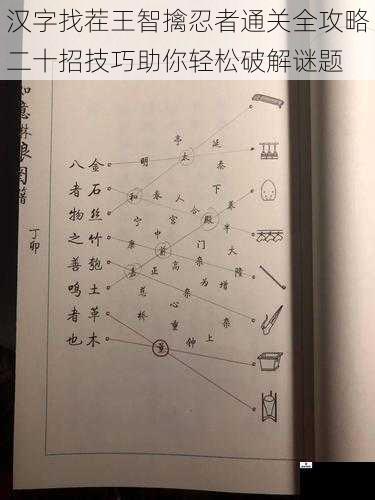 汉字找茬王智擒忍者通关全攻略
二十招技巧助你轻松破解谜题
如意琳琅图籍
丁卯
金石丝竹匏土草木
八者物之善鸣者也
亭 延
明 太 泰
和 春 人 下
宁 宫 合 殿 半
康 中 前 门 大
嘉 正 高 杂 隆
慈 为 增
桥 心 杂
重 钟 上